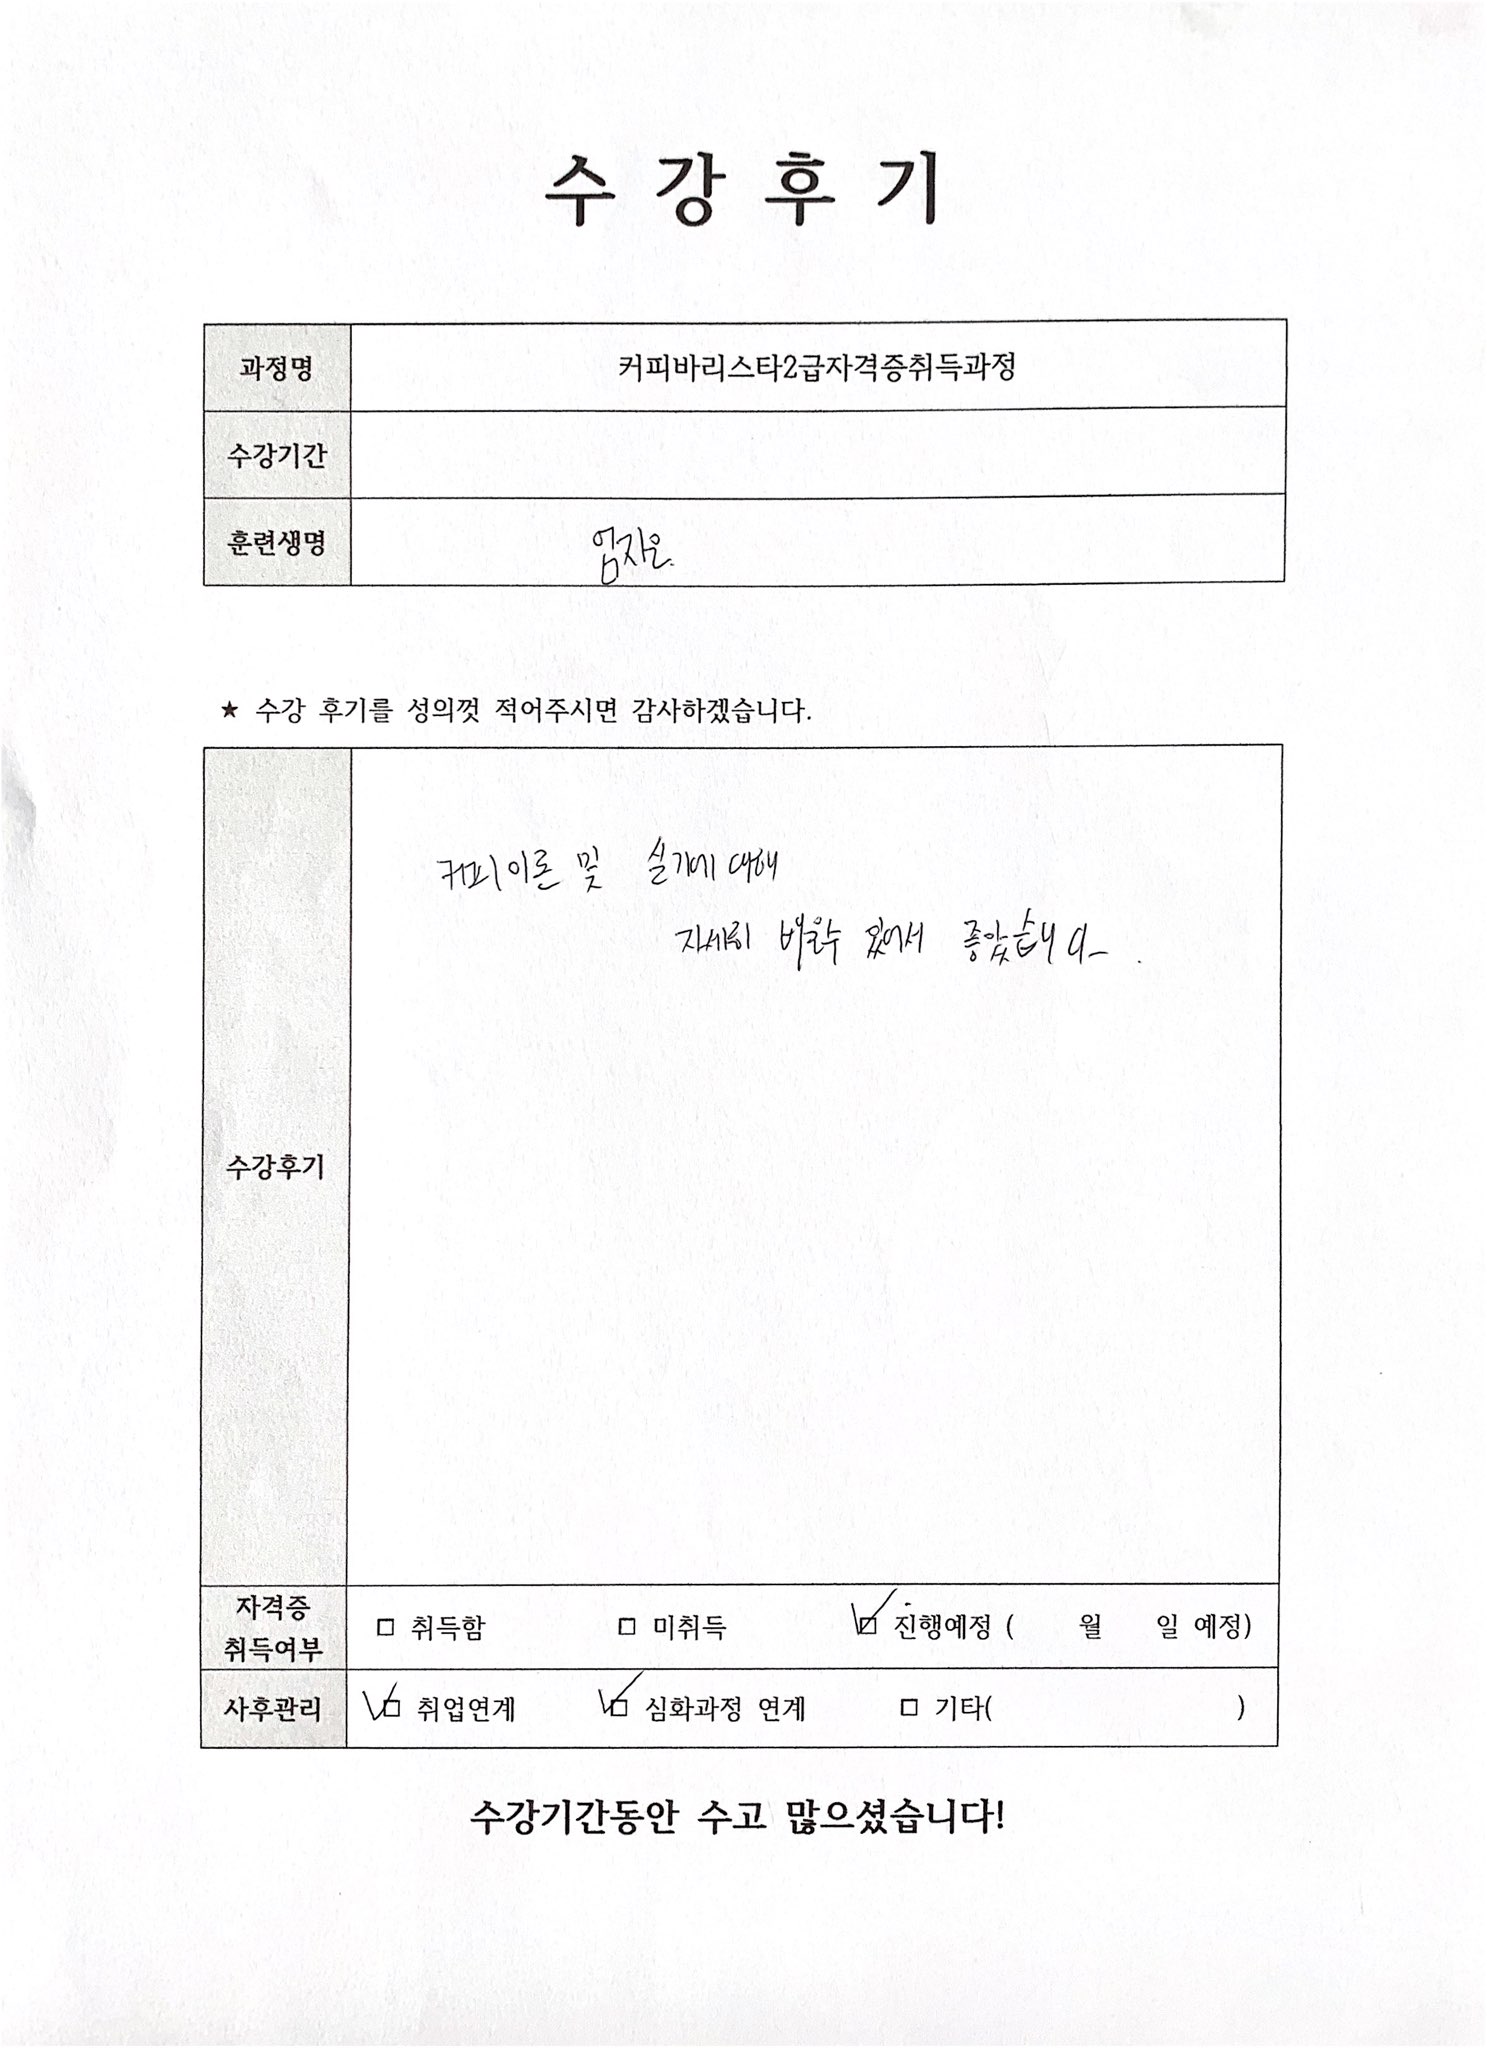 수강후기
과정명 커피바리스타2급자격증취득과정
수강기간
훈련생명 엄자은.
★ 수강 후기를 성의껏 적어주시면 감사하겠습니다.
커피이론 및 실기에 대해
자세히 배울수 있어서 좋았습니다.
수강후기
자격증
취득여부
□ 취득함 □ 미취득 ☑ 진행예정 ( 월 일 예정)
사후관리 ☑ 취업연계 ☑ 심화과정 연계 □ 기타( )
수강기간동안 수고 많으셨습니다!